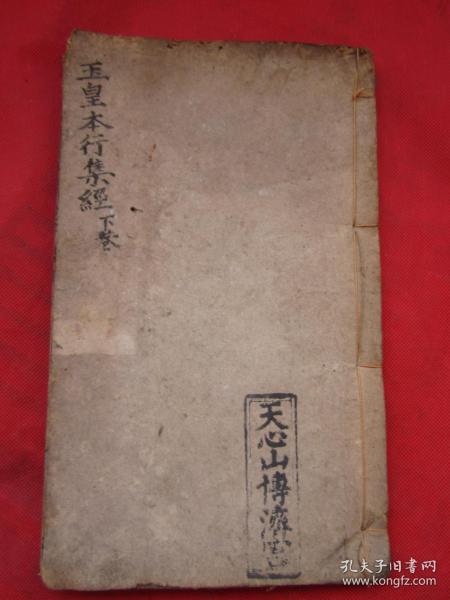 玉皇本行集經下卷
天心山博濟宮
孔夫子旧书网
www.kongfz.com